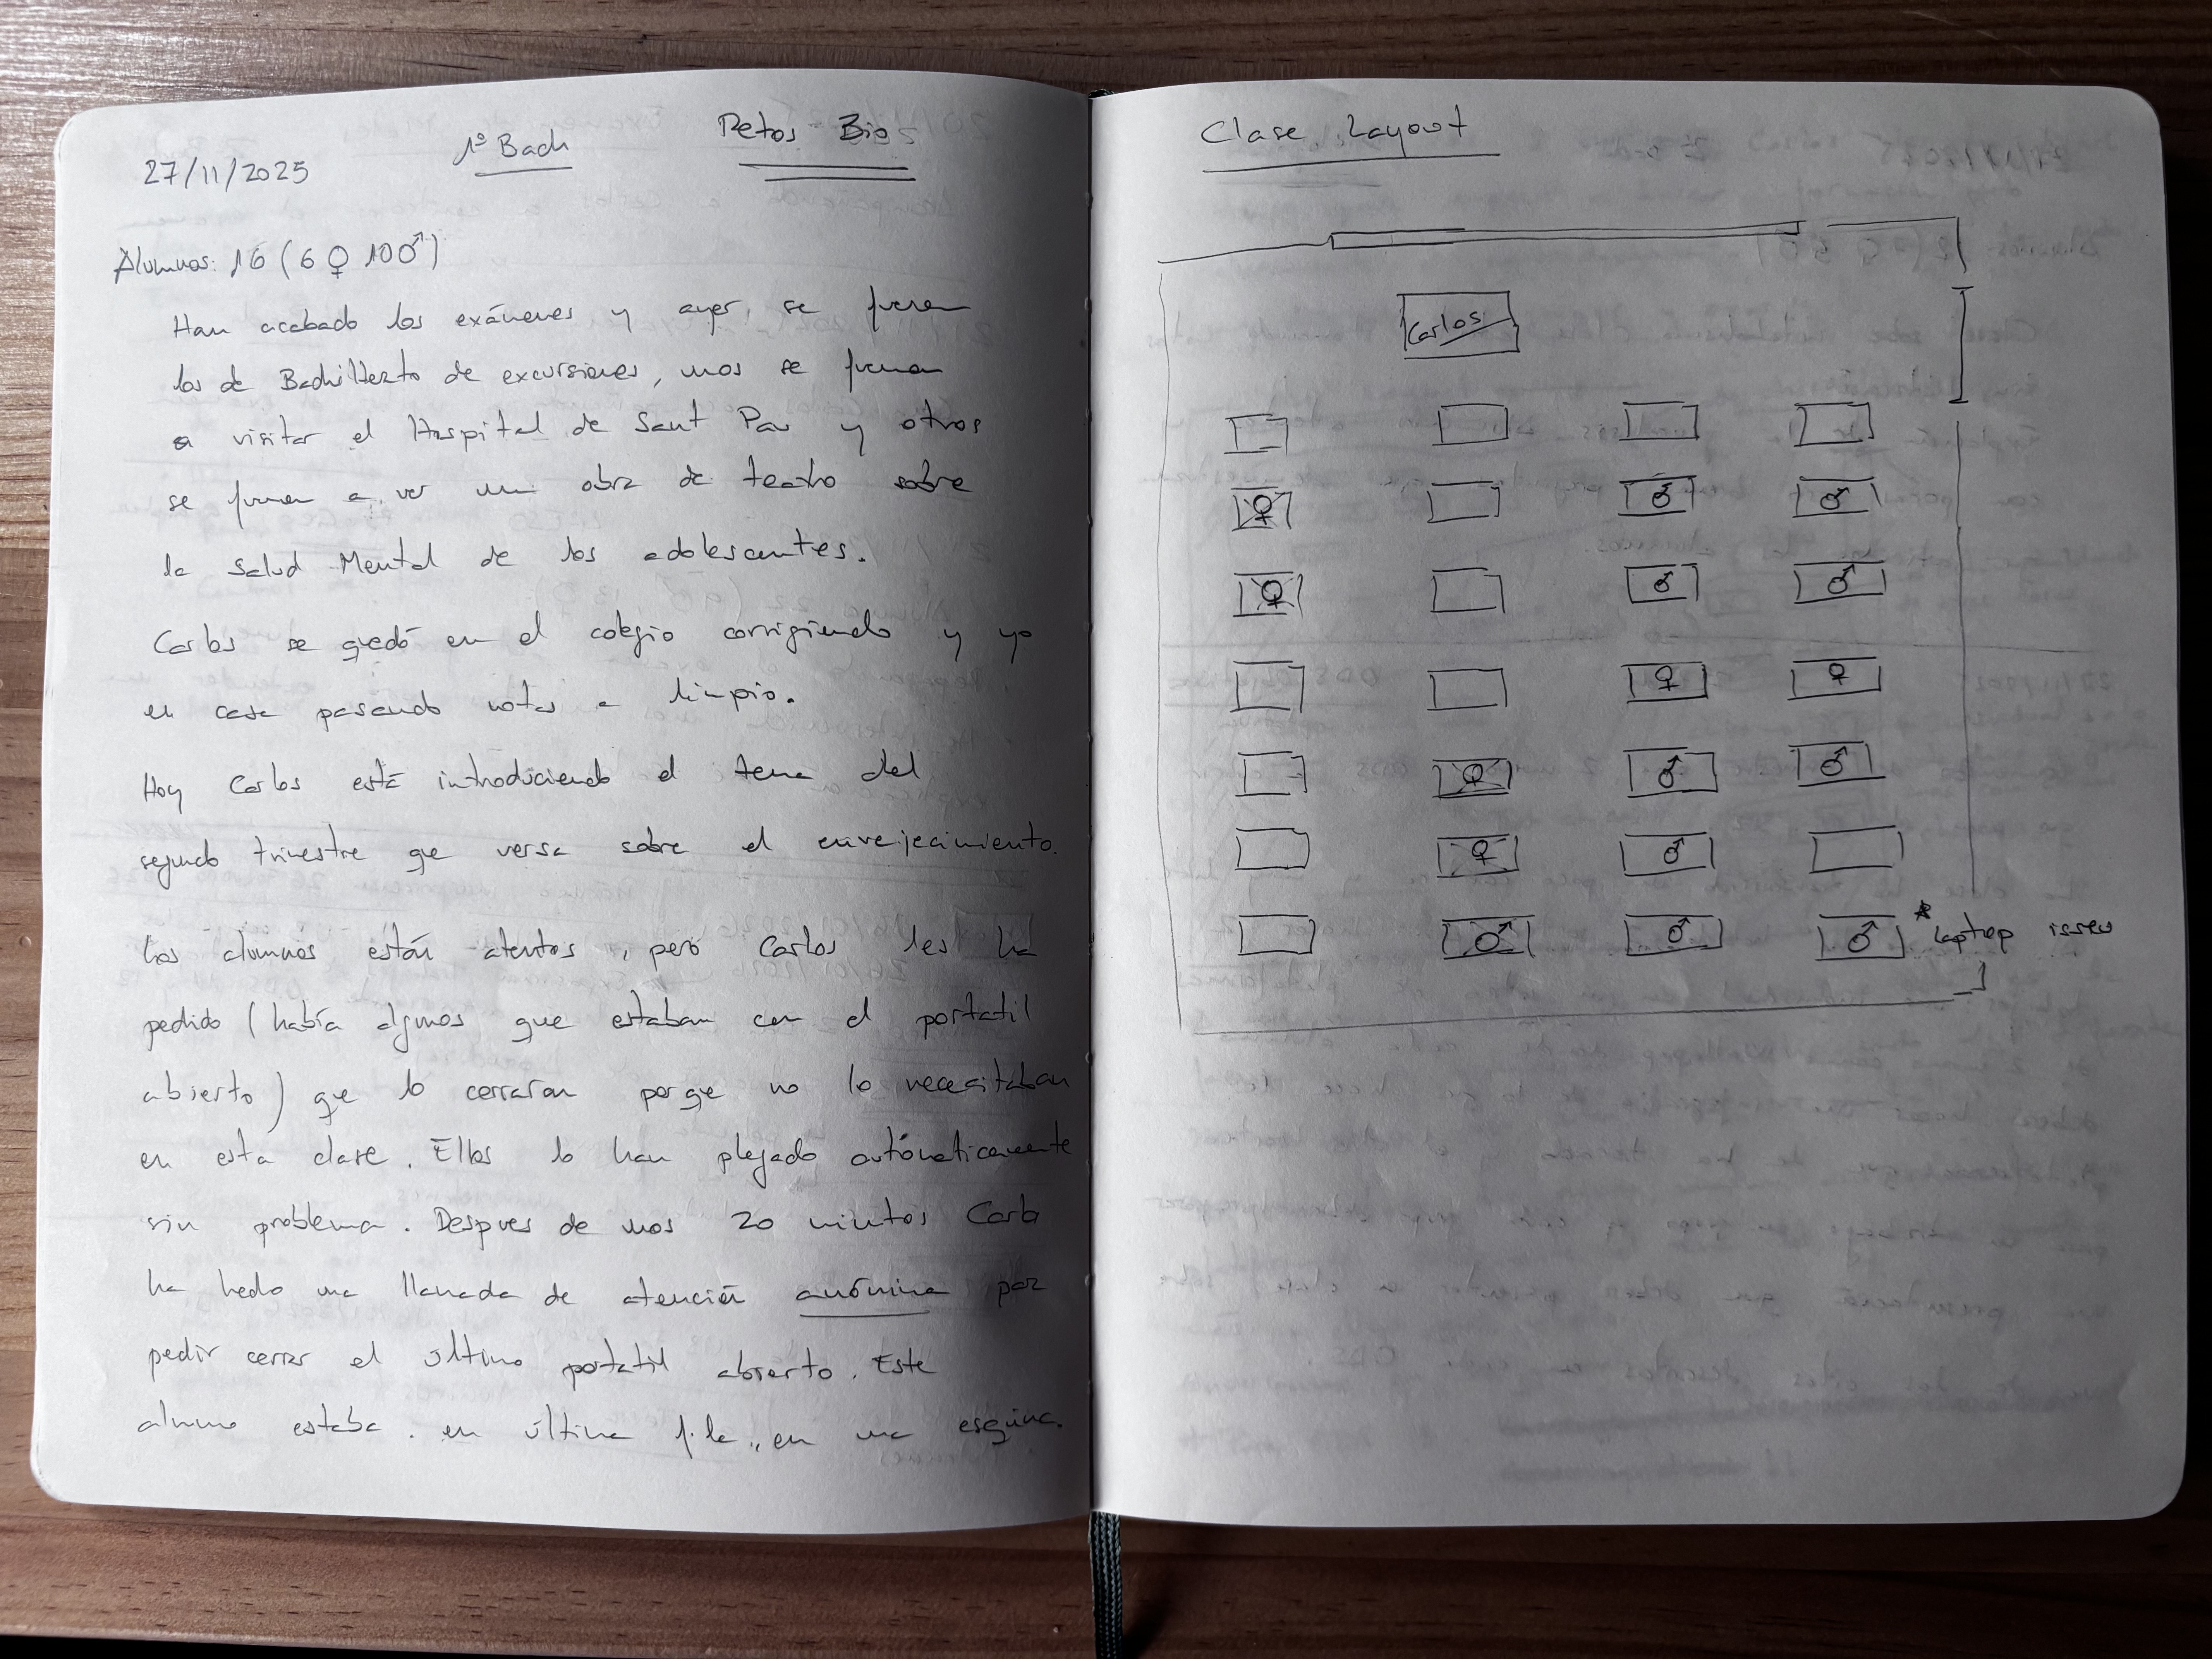 27/11/2025 1º Bach Retos Bio
Alumnos: 16 (6 ♀ 10 ♂)
Han acabado los exámenes y ayer, se fueron
los de Bachillerato de excursiones, unos se fueron
a visitar el Hospital de Sant Pau y otros
se fueron a ver una obra de teatro sobre
la Salud Mental de los adolescentes.
Carlos se quedó en el colegio corrigiendo y yo
en casa pasando notas a limpio.
Hoy Carlos está introduciendo el tema del
segundo trimestre que versa sobre el envejecimiento.
Los alumnos están atentos, pero Carlos les ha
pedido (había algunos que estaban con el portatil
abierto) que lo cerraran porque no lo necesitaban
en esta clase. Ellos lo han plegado autómaticamente
sin problema. Despues de unos 20 minutos Carlos
ha hecho una llamada de atención anónima por
pedir cerrar el último portatil abierto. Este
alumno estaba en última fila, en una esquina.
Clase Layout
Carlos
♀ ♂ ♂
♀ ♂ ♂
♀ ♀
♀ ♂ ♂
♀ ♂
♂ ♂ ♂ * laptop issue